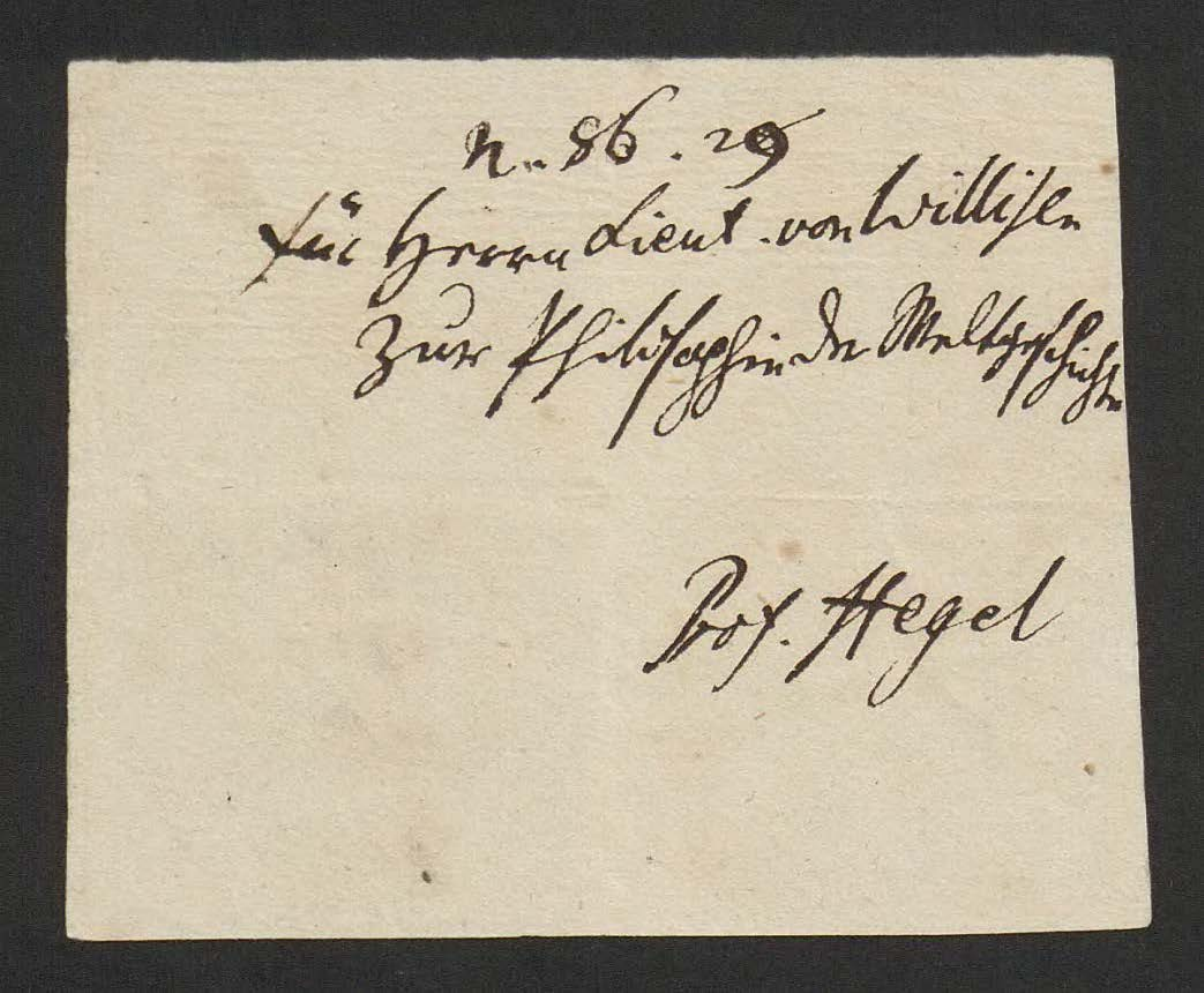 N. 86. 29
für Herrn Lieut. von Willisen
zur Philosophie der Weltgeschichte
Prof. Hegel